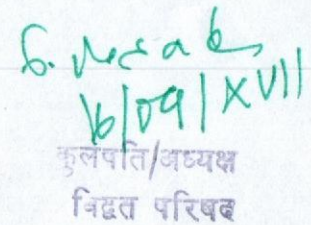 16/09/XVII
कुलपति/अध्यक्ष
विद्वत परिषद